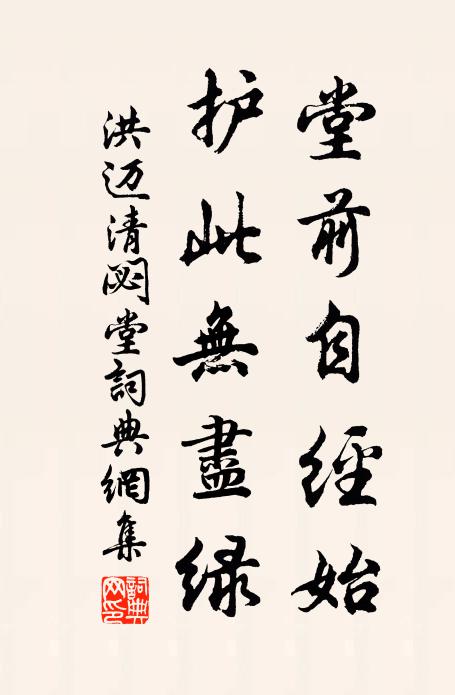 堂前自經始
护此無盡绿
洪迈清閟堂詞典網集
詞典网印